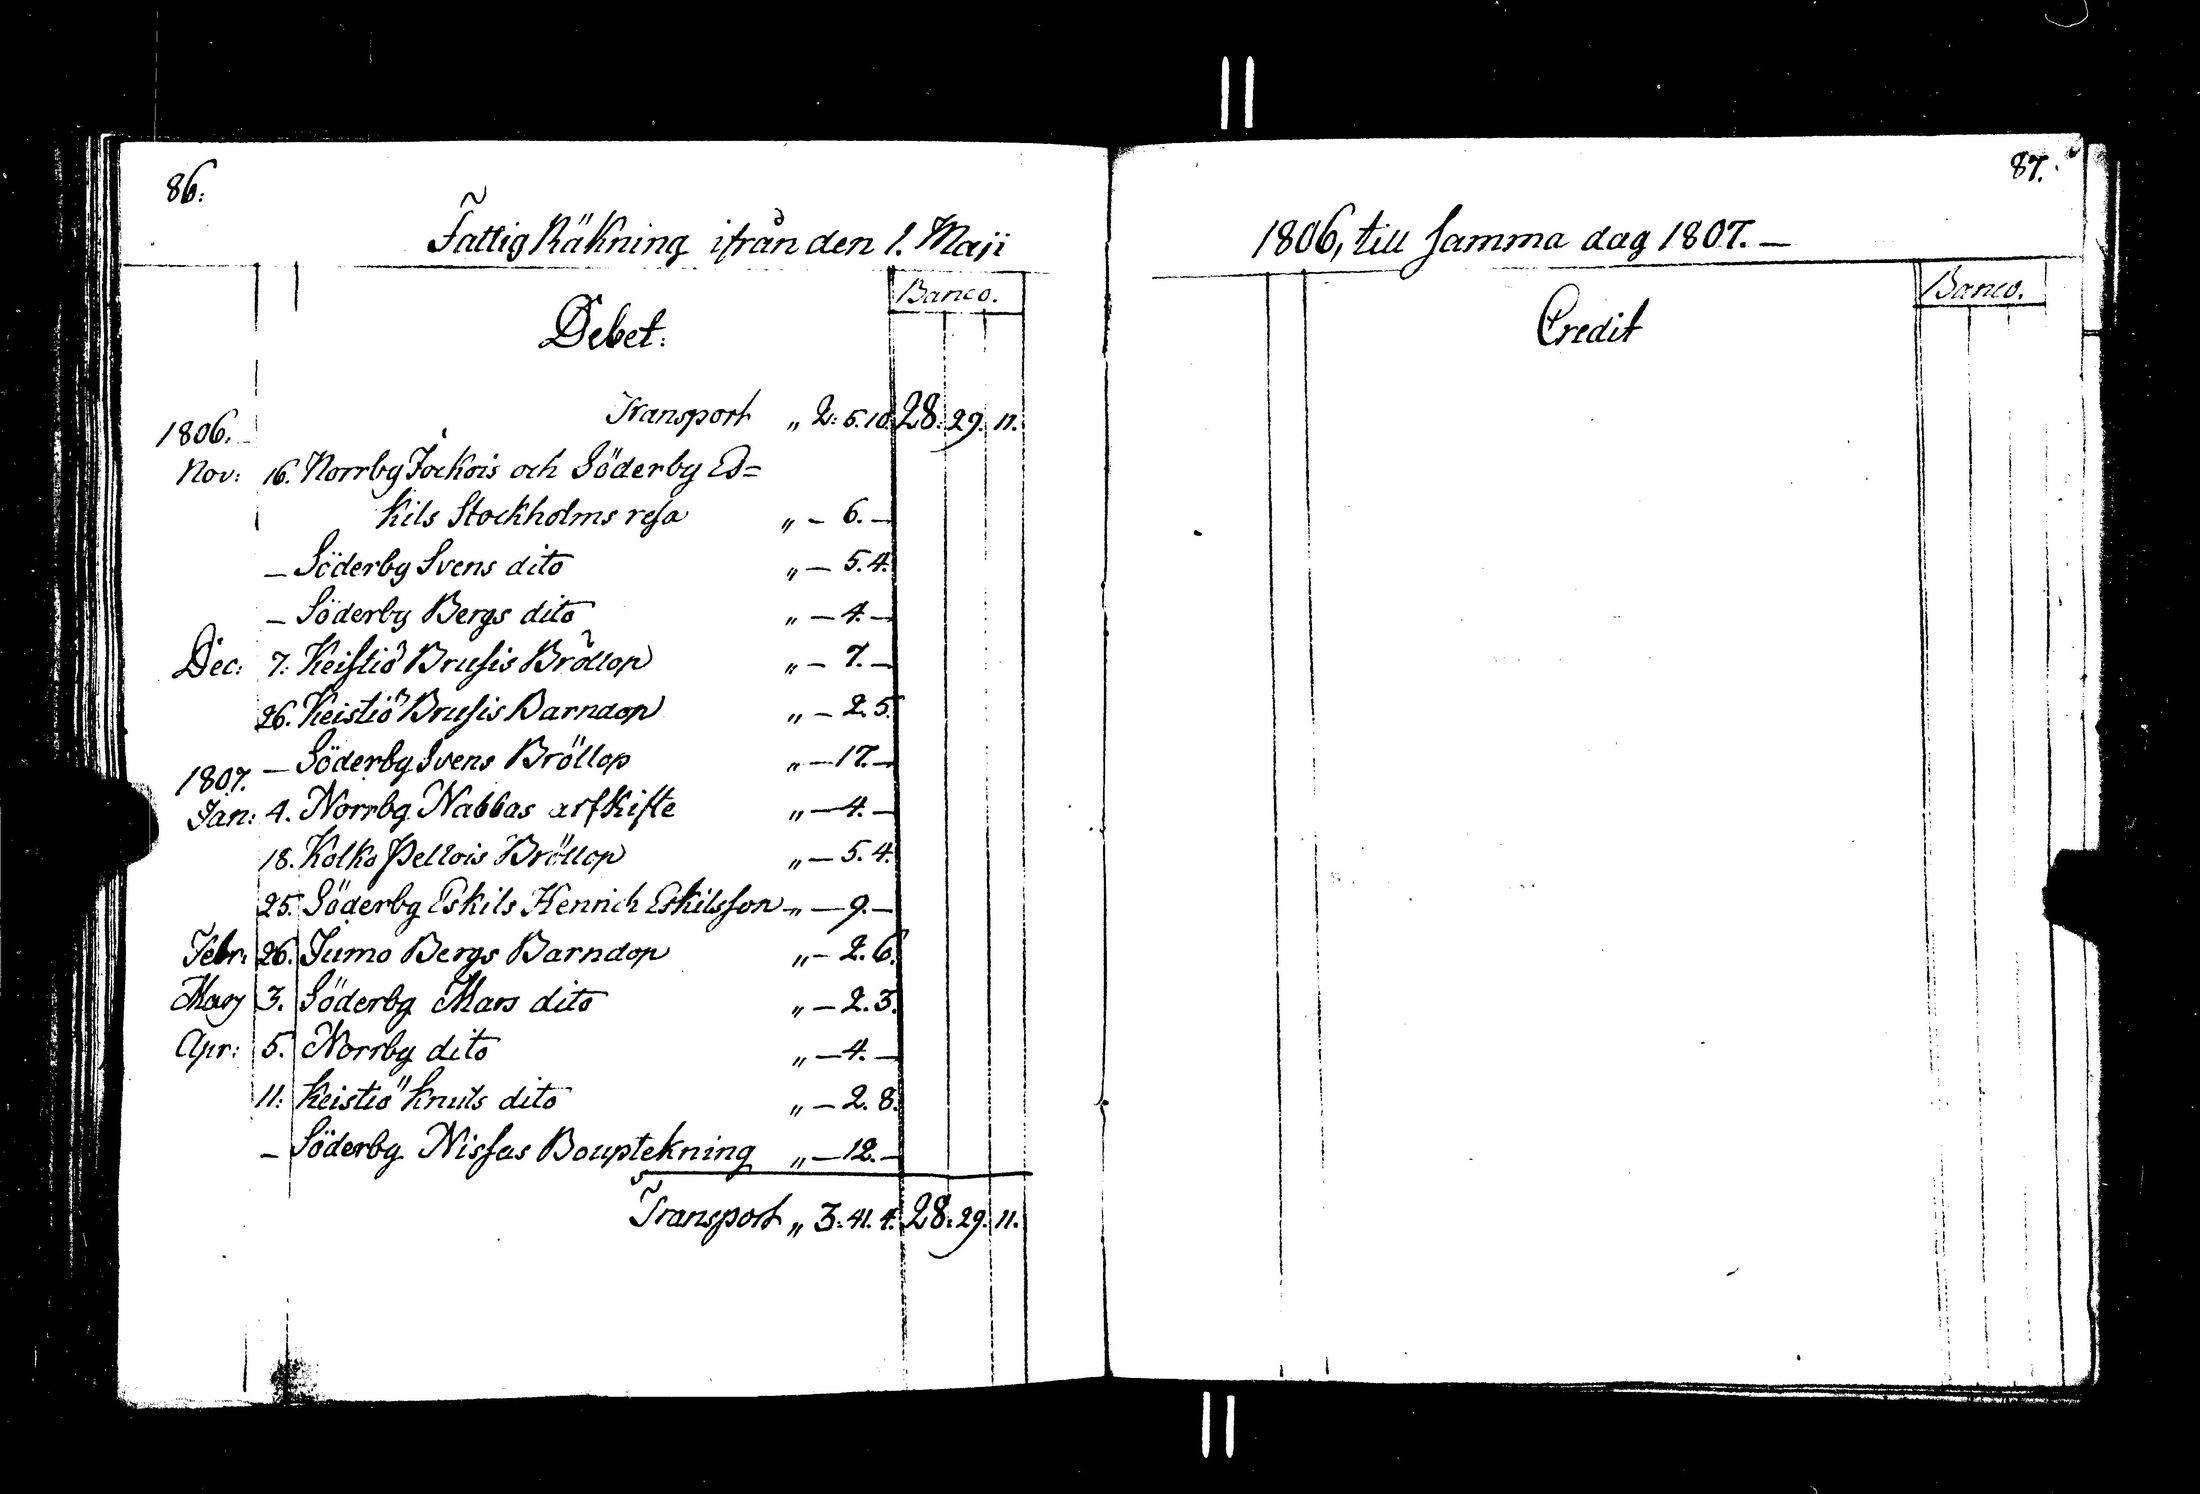 86:
Fattig Räkning ifrån den 1. Maji
Banco.
Debet:
Transport „ 2: 5. 10. 28: 29. 11.
1806.
Nov: 16. Norrby Jockois och Söderby Es=
kils Stockholms resa „ – 6. –
– Söderby Svens dito „ – 5. 4.
– Söderby Bergs dito „ – 4. –
Dec: 7: Keistiö Brusis Bröllop „ – 7. –
26. Keistiö Brusis Barndop „ – 2. 5.
– Söderby Svens Bröllop „ – 17. –
1807.
Jan: 4. Norrby Nabbas arfskifte „ – 4. –
18. Kolko Pellois Bröllop „ – 5. 4.
25. Söderby Eskils Henrich Eskilsson „ – 9. –
Febr: 26. Jumo Bergs Barndop „ – 2. 6.
Marz 3. Söderby Mars dito „ – 2. 3.
Apr: 5. Norrby dito „ – 4. –
11: Keistiö Knuts dito „ – 2. 8.
– Söderby Nissas Bouptekning „ – 12. –
Transport „ 3: 41. 4. 28: 29. 11.
87.
1806, till samma dag 1807. –
Banco.
Credit